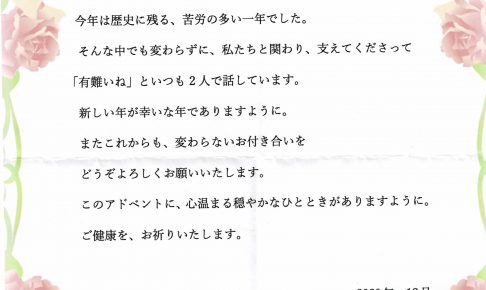 今年は歴史に残る、苦労の多い一年でした。
そんな中でも変わらずに、私たちと関わり、支えてくださって
「有難いね」といつも２人で話しています。
新しい年が幸いな年でありますように。
またこれからも、変わらないお付き合いを
どうぞよろしくお願いいたします。
このアドベントに、心温まる穏やかなひとときがありますように。
ご健康を、お祈りいたします。